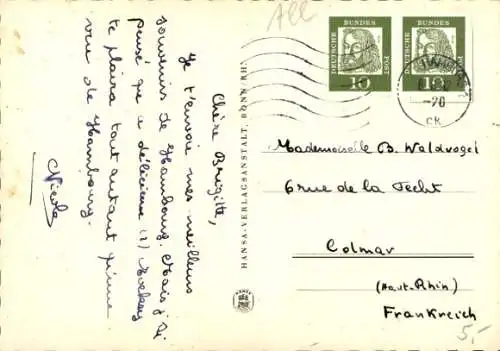 All
Chère Brigitte,
Je t'envoie mes meilleurs
souvenirs de Hambourg. Mais j'ai
pensé que ce délicieux (?)
te plaira tout autant qu'une
vue de Hambourg.
Nicole
HANSA-VERLAGSANSTALT, BONN/RH.
DEUTSCHE
BUNDES
POST
10
DEUTSCHE
BUNDES
POST
10
-20
CK
Mademoiselle B. Waldvogel
6 rue de la Fecht
Colmar
(Haut-Rhin)
Frankreich
5,-